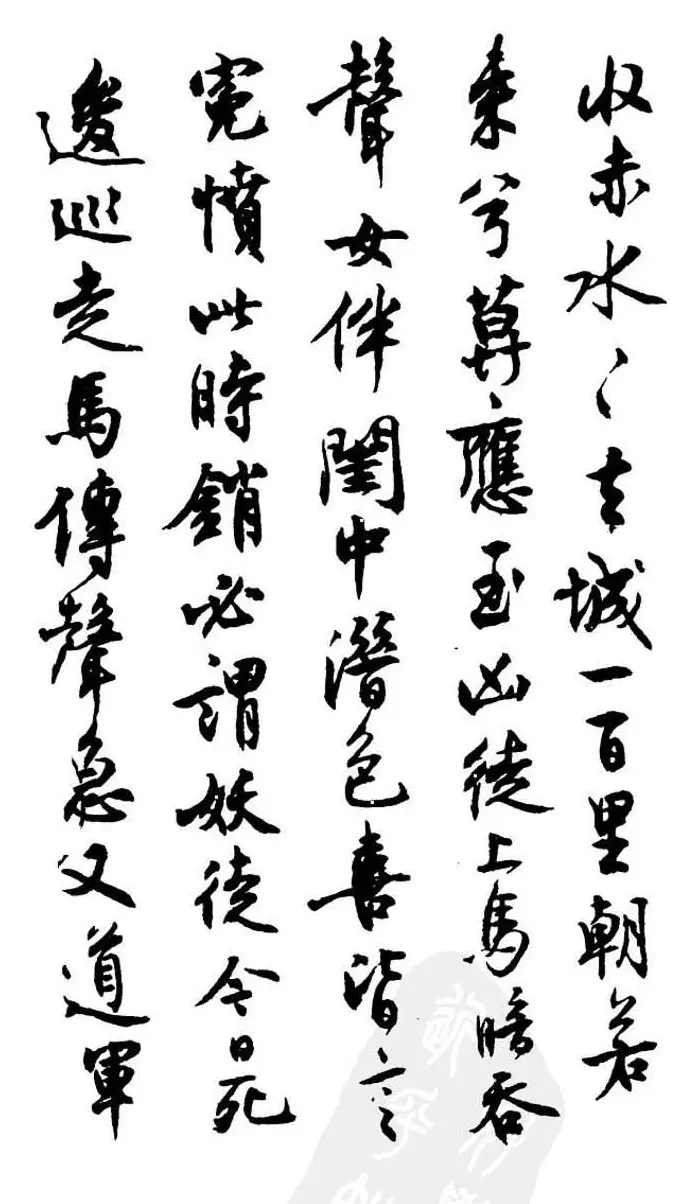 收赤水〻去城一百里朝若
來兮暮應至凶徒上馬暗吞
聲女伴閨中潛色喜皆言
冤憤此時銷必謂妖徒今日死
逡巡走馬傳聲急又道軍